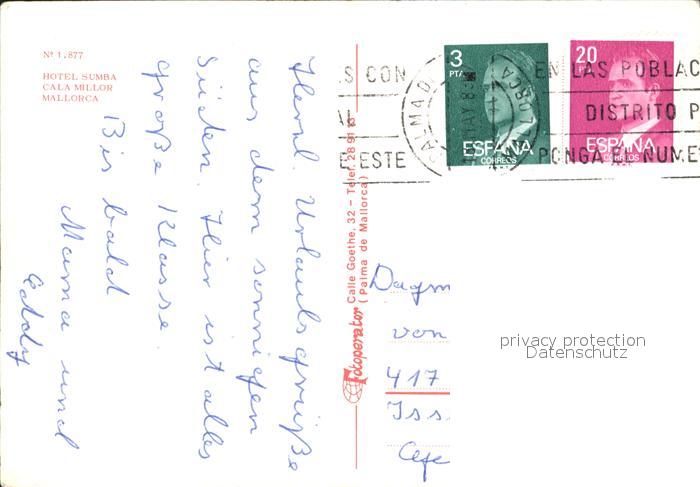 Nº 1.877
HOTEL SUMBA
CALA MILLOR
MALLORCA
Herzl. Urlaubsgrüße
aus dem sonnigen
Süden. Hier ist alles
große Klasse.
Bis bald
Mama und
Eddy
Fotoperator Calle Goethe, 32 - Telef. 28 91
( Palma de Mallorca )
S CON
ESTE
PALMA D
3 PTA
ESPAÑA
CORREOS
20
ESPAÑA
CORREOS
EN LAS POBLAC
DISTRITO P
PONGA EL NUME
Dagm
von
417
Iss
privacy protection
Datenschutz